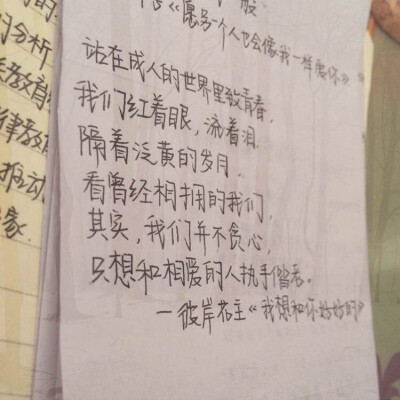 《愿另一个人也会像我一样爱你》
站在成人的世界里致青春,
我们红着眼,流着泪.
隔着泛黄的岁月.
看曾经相拥的我们,
其实,我们并不贪心,
只想和相爱的人执手偕老。
—彼岸花主《我想和你好好的》
的分析
教育
律教育
推动
象.